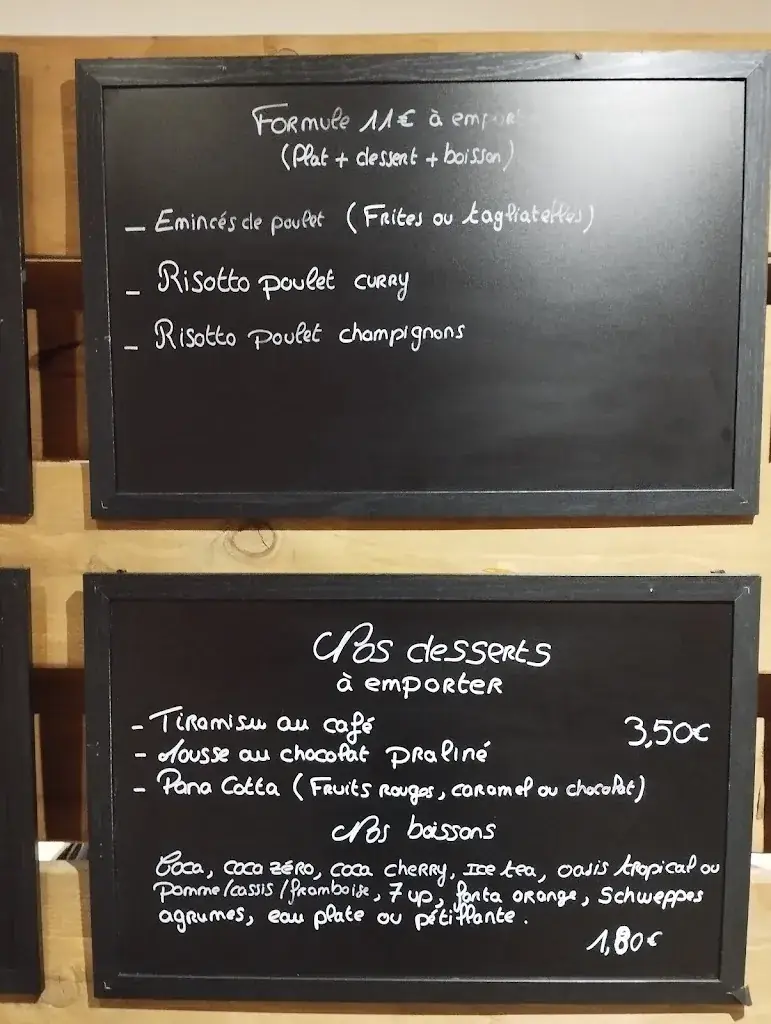 Formule 11€ à empor
(Plat + dessert + boisson)
- Emincés de poulet (Frites ou tagliatelles)
- Risotto poulet curry
- Risotto poulet champignons
Nos desserts
à emporter
- Tiramisu au café 3,50€
- Mousse au chocolat praliné
- Pana Cotta (Fruits rouges, caramel ou chocolat)
Nos boissons
Coca, coca zéro, coca cherry, Ice tea, oasis tropical ou
Pomme/cassis/framboise, 7 up, fanta orange, Schweppes
agrumes, eau plate ou pétillante.
1,80€